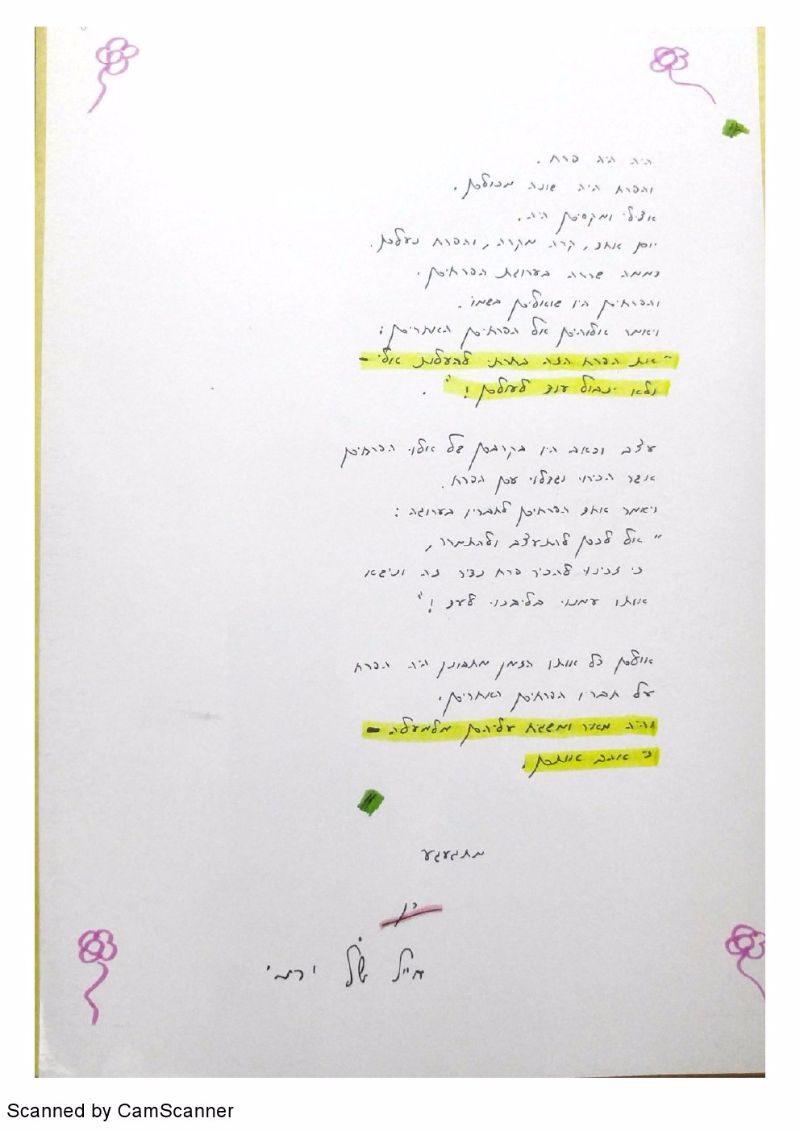 היה היה פרח.
והפרח היה שונה מכולם.
אצילי ומקסים היה.
יום אחד, קרה מקרה, והפרח נעלם.
דממה שררה בערוגת הפרחים.
והפרחים היו שואלים בשמו.
ויאמר אלוהים אל הפרחים האחרים:
"את הפרח הזה בחרתי להעלות אלי -
ולא יבול עוד לעולם!".
עצב וכאב היו בקרבם של אלו הפרחים
אשר הכירו וגדלו עם הפרח.
ויאמר אחד הפרחים לחבריו בערוגה:
"אל לכם להתעצב ולהתמרר,
כי זכינו להכיר פרח נדיר זה ונישא
אותו עמנו בליבנו לעד!"
אולם כל אותו הזמן מתבונן היה הפרח
על חבריו הפרחים האחרים.
והיה מאיר ומשגיח עליהם מלמעלה -
כי אוהב אותם.
מתגעגע
חייל של ירמי
Scanned by CamScanner